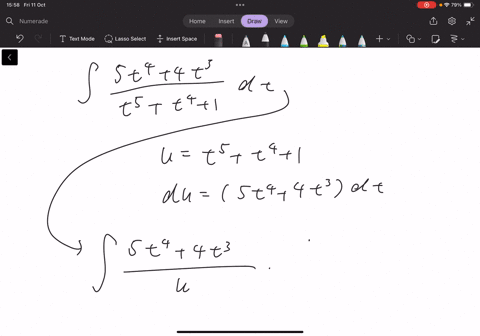 15:56 Fri 11 Oct
79%
Numerade
Home Insert Draw View
Text Mode Lasso Select Insert Space
∫ (5t⁴+4t³)/(t⁵+t⁴+1) dt
u = t⁵+t⁴+1
du = (5t⁴+4t³) dt
∫ (5t⁴+4t³)/u ·